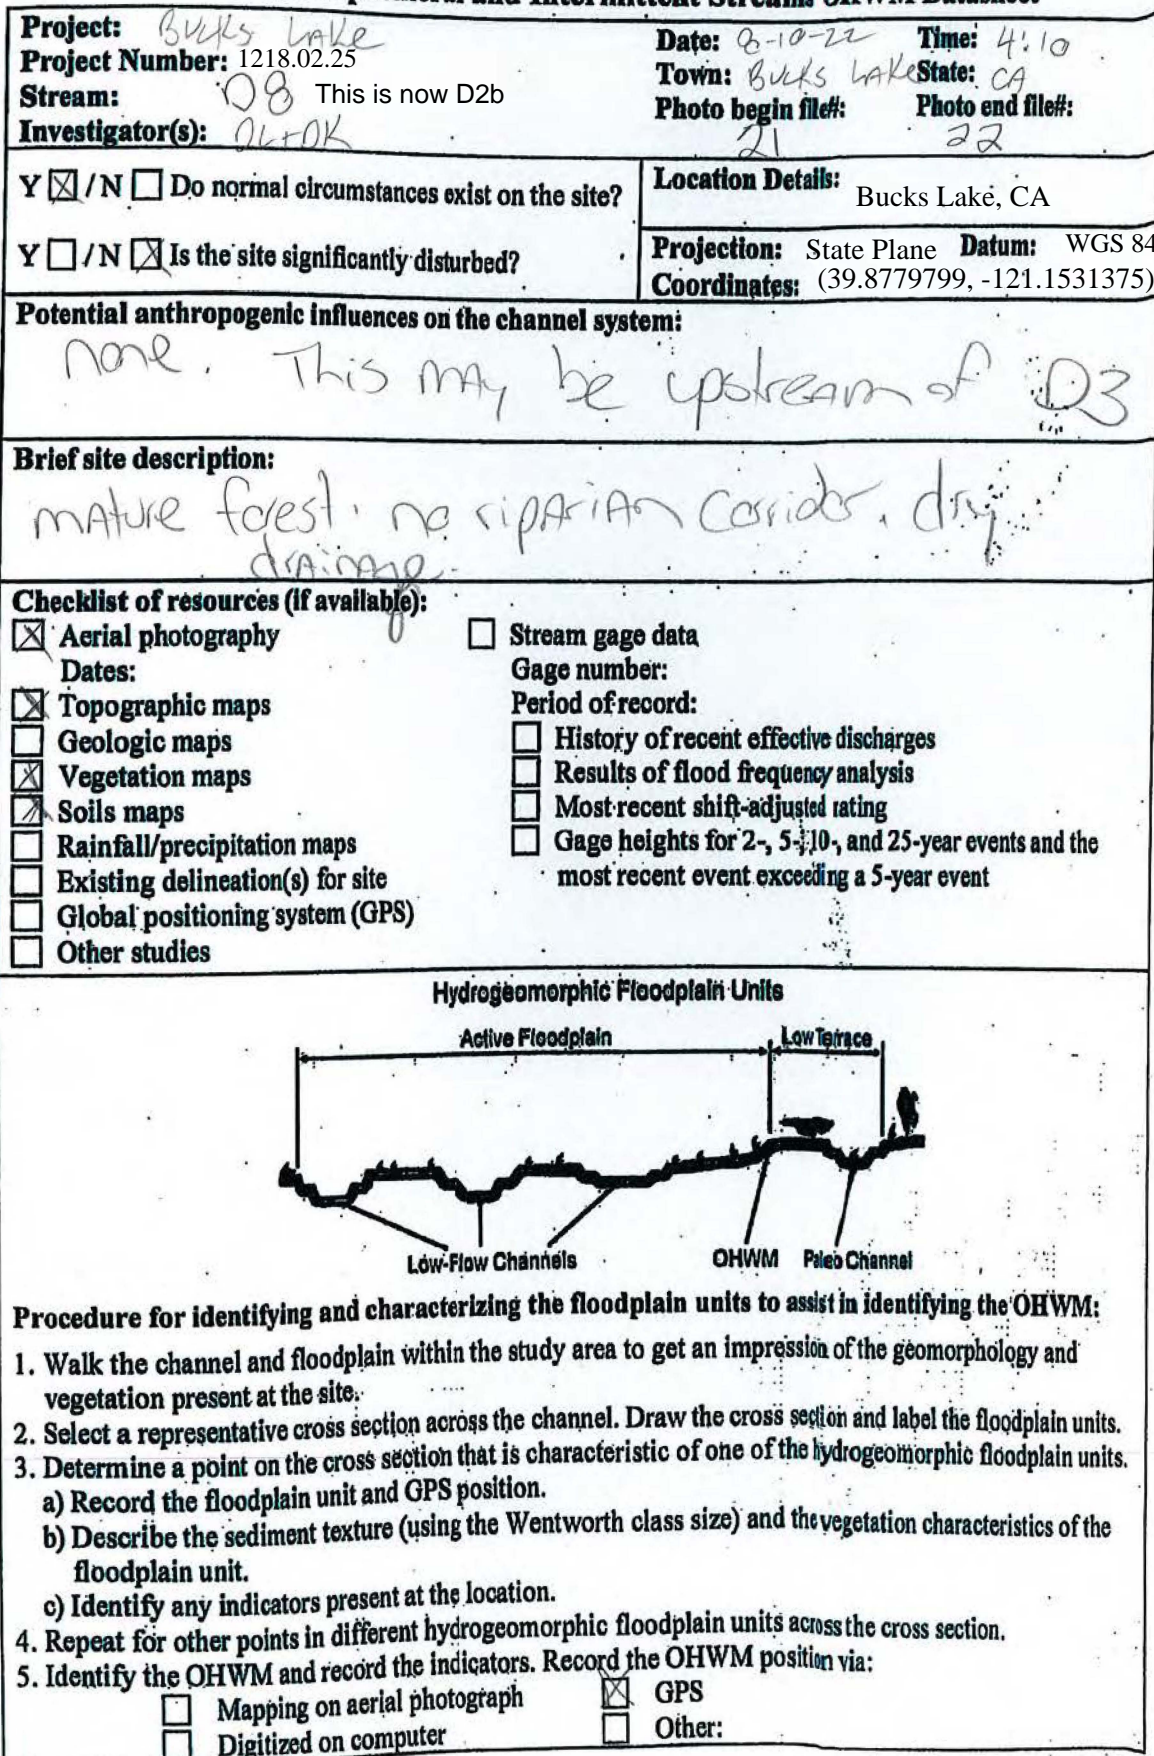 Project: Bucks Lake
Date: 8-10-22 Time: 4:10
Project Number: 1218.02.25
Town: Bucks Lake State: CA
Stream: D8 This is now D2b
Photo begin file#: Photo end file#:
Investigator(s):
21 22
Y ☒ / N ☐ Do normal circumstances exist on the site?
Location Details:
Bucks Lake, CA
Y ☐ / N ☒ Is the site significantly disturbed?
Projection: State Plane Datum: WGS 84
Coordinates: (39.8779799, -121.1531375)
Potential anthropogenic influences on the channel system:
none. This may be upstream of D3
Brief site description:
mature forest. no riparian corridor. dry
drainage.
Checklist of resources (if available):
☒ Aerial photography
Dates:
☒ Topographic maps
☐ Geologic maps
☒ Vegetation maps
☒ Soils maps
☐ Rainfall/precipitation maps
☐ Existing delineation(s) for site
☐ Global positioning system (GPS)
☐ Other studies
☐ Stream gage data
Gage number:
Period of record:
☐ History of recent effective discharges
☐ Results of flood frequency analysis
☐ Most recent shift-adjusted rating
☐ Gage heights for 2-, 5-, 10-, and 25-year events and the
most recent event exceeding a 5-year event
Hydrogeomorphic Floodplain Units
Active Floodplain Low Terrace
Low-Flow Channels OHWM Paleo Channel
Procedure for identifying and characterizing the floodplain units to assist in identifying the OHWM:
1. Walk the channel and floodplain within the study area to get an impression of the geomorphology and
vegetation present at the site.
2. Select a representative cross section across the channel. Draw the cross section and label the floodplain units.
3. Determine a point on the cross section that is characteristic of one of the hydrogeomorphic floodplain units.
a) Record the floodplain unit and GPS position.
b) Describe the sediment texture (using the Wentworth class size) and the vegetation characteristics of the
floodplain unit.
c) Identify any indicators present at the location.
4. Repeat for other points in different hydrogeomorphic floodplain units across the cross section.
5. Identify the OHWM and record the indicators. Record the OHWM position via:
☐ Mapping on aerial photograph ☒ GPS
☐ Digitized on computer ☐ Other: